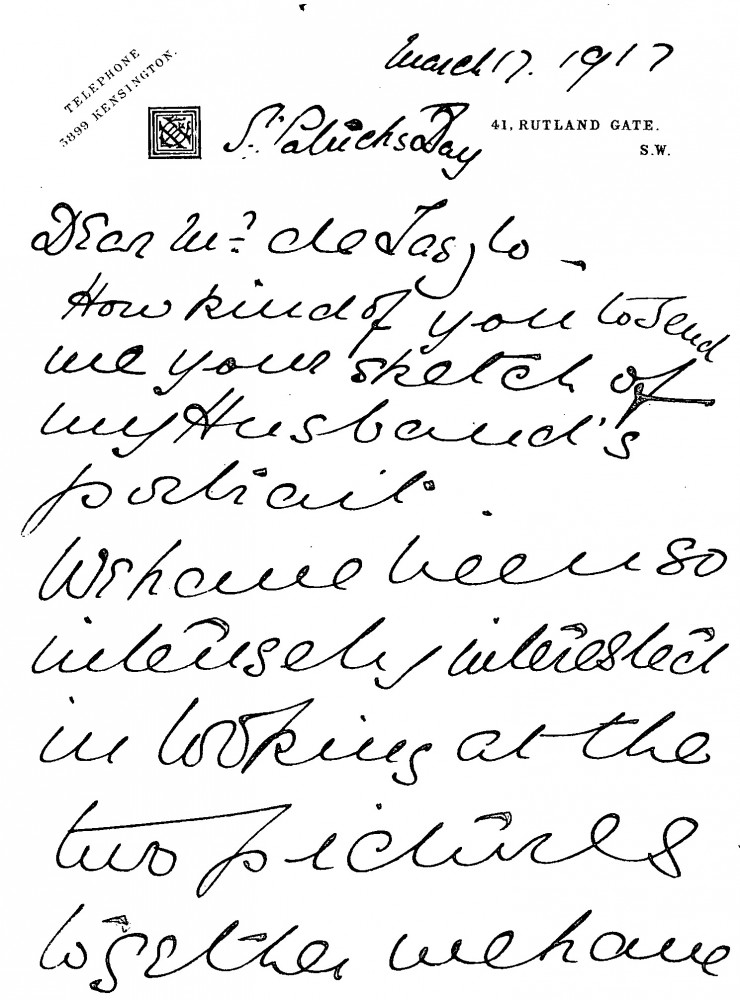 March 17. 1917
TELEPHONE
3899 KENSINGTON.
St. Patrick's Day
41, RUTLAND GATE.
S.W.
Dear Mr. de Laszlo -
How kind of you to send
me your sketch of
my Husband's
portrait.
We have been so
intensely interested
in looking at the
two pictures
together we have